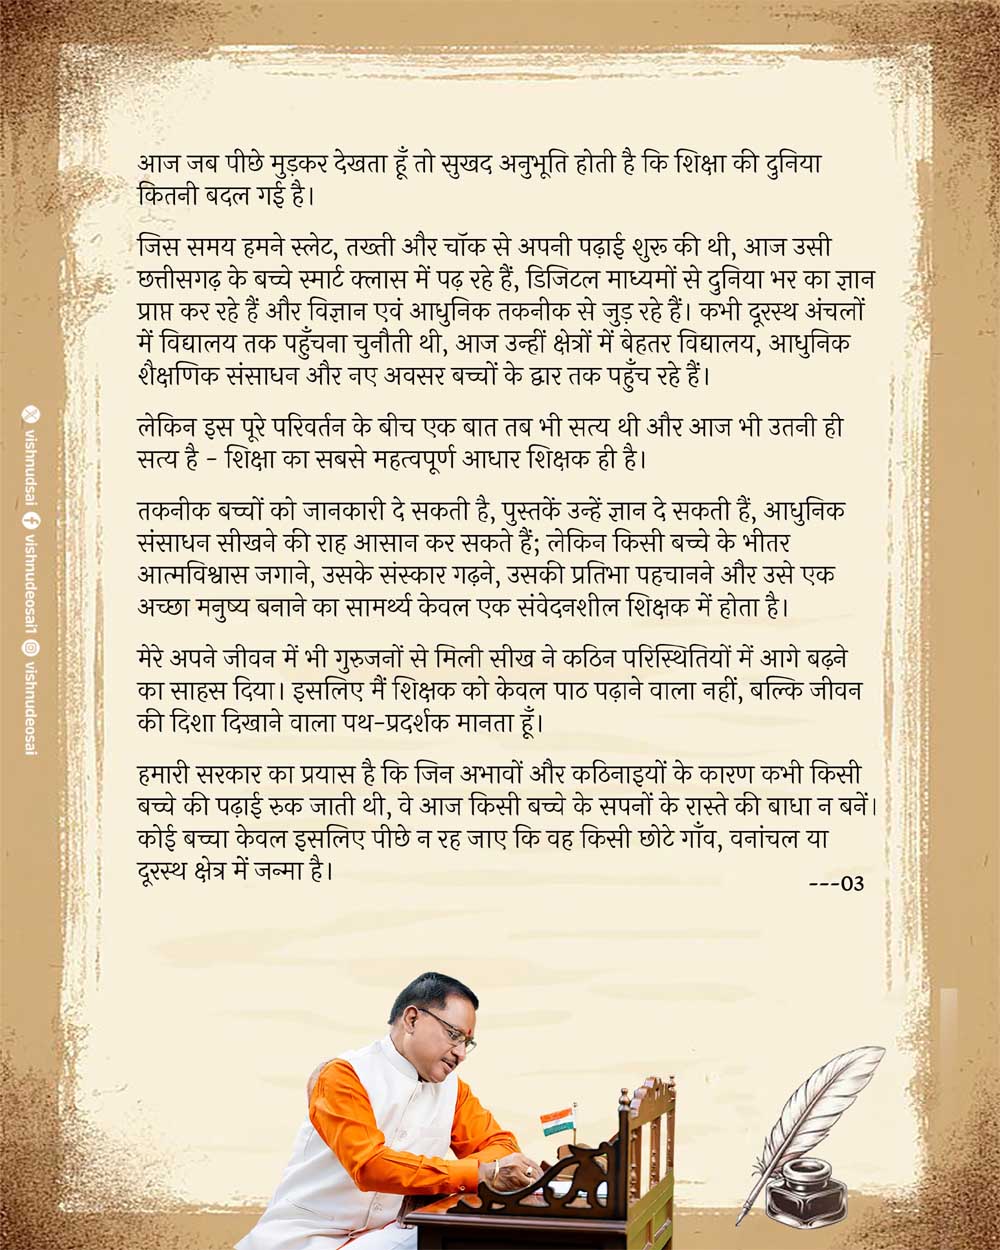 आज जब पीछे मुड़कर देखता हूँ तो सुखद अनुभूति होती है कि शिक्षा की दुनिया
कितनी बदल गई है।
जिस समय हमने स्लेट, तख्ती और चॉक से अपनी पढ़ाई शुरू की थी, आज उसी
छत्तीसगढ़ के बच्चे स्मार्ट क्लास में पढ़ रहे हैं, डिजिटल माध्यमों से दुनिया भर का ज्ञान
प्राप्त कर रहे हैं और विज्ञान एवं आधुनिक तकनीक से जुड़ रहे हैं। कभी दूरस्थ अंचलों
में विद्यालय तक पहुँचना चुनौती थी, आज उन्हीं क्षेत्रों में बेहतर विद्यालय, आधुनिक
शैक्षणिक संसाधन और नए अवसर बच्चों के द्वार तक पहुँच रहे हैं।
लेकिन इस पूरे परिवर्तन के बीच एक बात तब भी सत्य थी और आज भी उतनी ही
सत्य है - शिक्षा का सबसे महत्वपूर्ण आधार शिक्षक ही है।
तकनीक बच्चों को जानकारी दे सकती है, पुस्तकें उन्हें ज्ञान दे सकती हैं, आधुनिक
संसाधन सीखने की राह आसान कर सकते हैं; लेकिन किसी बच्चे के भीतर
आत्मविश्वास जगाने, उसके संस्कार गढ़ने, उसकी प्रतिभा पहचानने और उसे एक
अच्छा मनुष्य बनाने का सामर्थ्य केवल एक संवेदनशील शिक्षक में होता है।
मेरे अपने जीवन में भी गुरुजनों से मिली सीख ने कठिन परिस्थितियों में आगे बढ़ने
का साहस दिया। इसलिए मैं शिक्षक को केवल पाठ पढ़ाने वाला नहीं, बल्कि जीवन
की दिशा दिखाने वाला पथ-प्रदर्शक मानता हूँ।
हमारी सरकार का प्रयास है कि जिन अभावों और कठिनाइयों के कारण कभी किसी
बच्चे की पढ़ाई रुक जाती थी, वे आज किसी बच्चे के सपनों के रास्ते की बाधा न बनें।
कोई बच्चा केवल इसलिए पीछे न रह जाए कि वह किसी छोटे गाँव, वनांचल या
दूरस्थ क्षेत्र में जन्मा है।
---03
vishnudsai vishnudeosai1 vishnudeosai